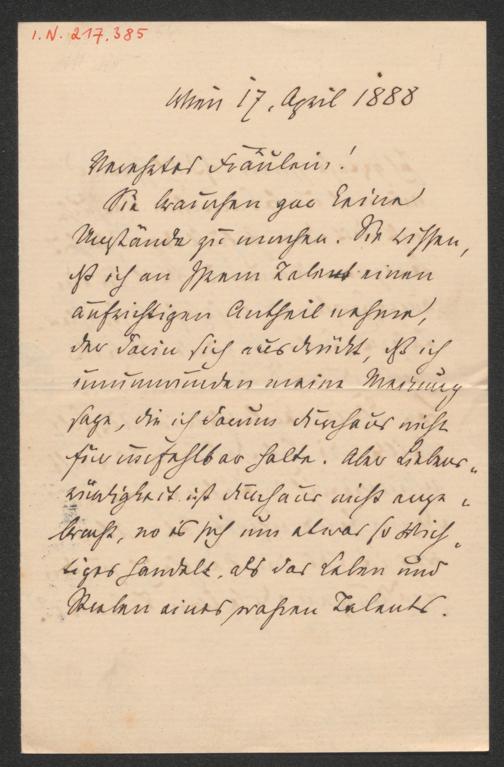 I.N. 217.385
Wien 17. April 1888
Verehrtes Fräulein!
Sie brauchen gar keine
Umstände zu machen. Sie wissen,
daß ich an Ihrem Talent einen
aufrichtigen Antheil nehme,
der darin sich ausdrückt, daß ich
unumwunden meine Meinung
sage, die ich darum durchaus nicht
für unfehlbar halte. Aber Liebens-
würdigkeit ist durchaus nicht ange-
bracht, wo es sich um etwas so Wich-
tiges handelt, als das Leben und
Streben eines wahren Talents.